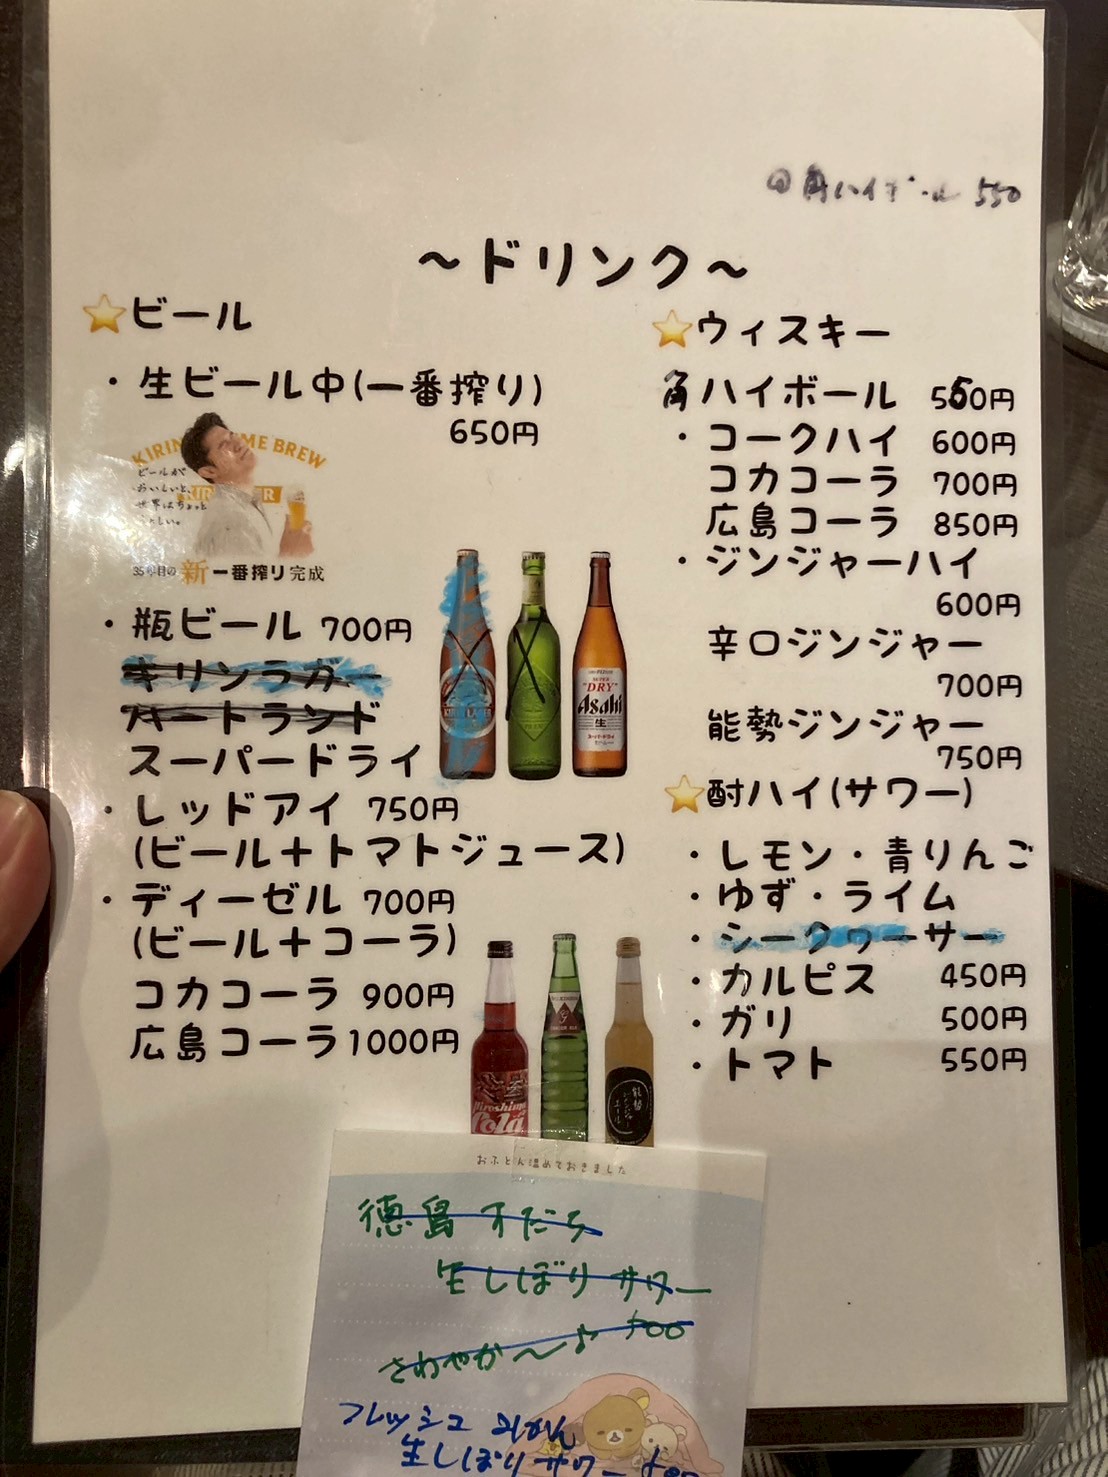 角ハイボール 550
～ドリンク～
⭐ビール
・生ビール中(一番搾り)
650円
KIRIN HOME BREW
ビールが
おいしいと、
世界はちょっと
新一番搾り完成
・瓶ビール 700円
キリンラガー
ハートランド
スーパードライ
SUPER
"DRY"
Asahi
生
スーパードライ
・レッドアイ 750円
(ビール＋トマトジュース)
・ディーゼル 700円
(ビール＋コーラ)
コカコーラ 900円
広島コーラ1000円
Hiroshima
Cola
能勢
ジンジャー
エール
⭐ウィスキー
角ハイボール 550円
・コークハイ 600円
コカコーラ 700円
広島コーラ 850円
・ジンジャーハイ
600円
辛口ジンジャー
700円
能勢ジンジャー
750円
⭐酎ハイ(サワー)
・レモン・青りんご
・ゆず・ライム
・シークヮーサー
・カルピス 450円
・ガリ 500円
・トマト 550円
おふとん温めておきました
徳島 すだち
生しぼりサワー
500
さわやか～♪
フレッシュ みかん
生しぼりサワー 500